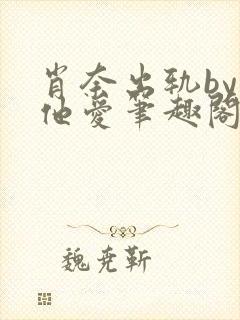 肖奈出轨by
他爱笔趣阁
魏尭靳